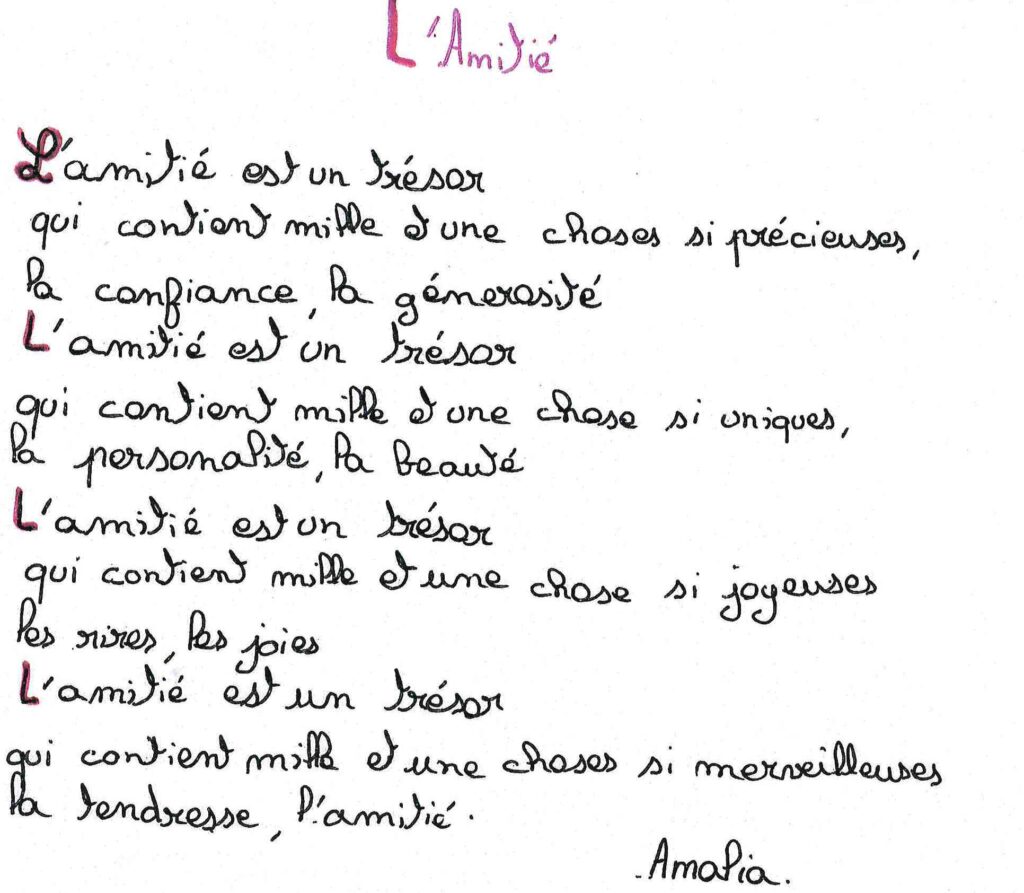 L'Amitié
L'amitié est un trésor
qui contient mille et une choses si précieuses,
la confiance, la génerosité
L'amitié est un trésor
qui contient mille et une chose si uniques,
la personalité, la beauté
L'amitié est un trésor
qui contient mille et une chose si joyeuses
les rires, les joies
L'amitié est un trésor
qui contient mille et une choses si merveilleuses
la tendresse, l'amitié.
Amalia.